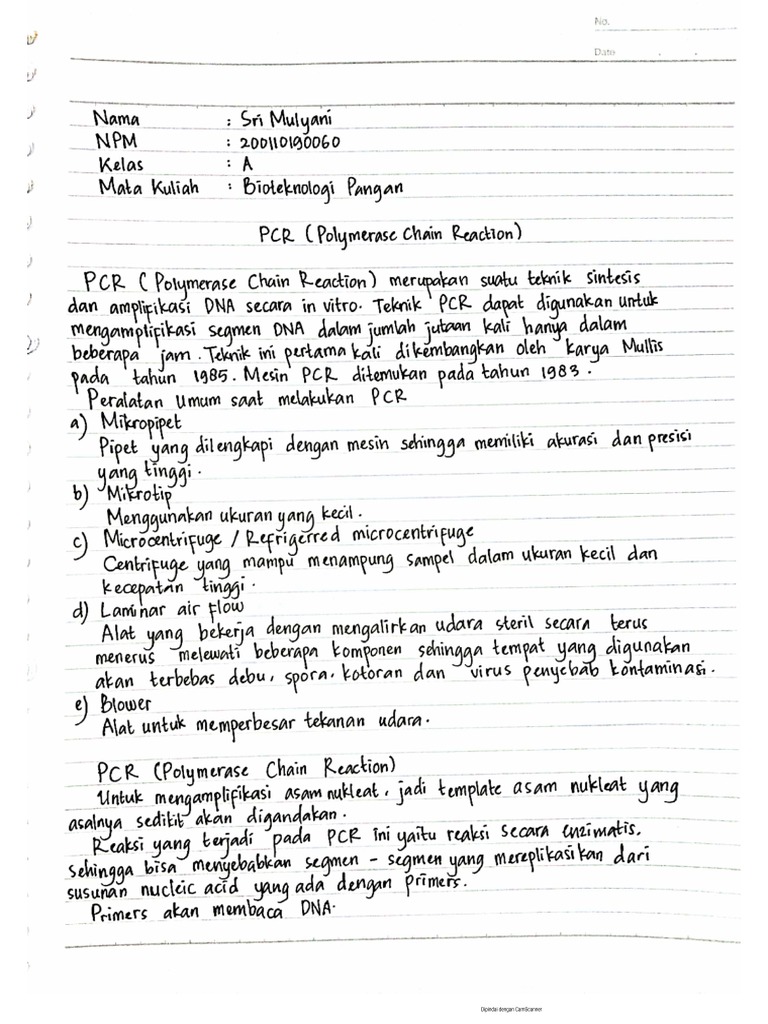 No.
Date . .
Nama : Sri Mulyani
NPM : 200110190060
Kelas : A
Mata Kuliah : Bioteknologi Pangan
PCR (Polymerase Chain Reaction)
PCR (Polymerase Chain Reaction) merupakan suatu teknik sintesis
dan amplifikasi DNA secara in vitro. Teknik PCR dapat digunakan untuk
mengamplifikasi segmen DNA dalam jumlah jutaan kali hanya dalam
beberapa jam. Teknik ini pertama kali dikembangkan oleh Karya Mullis
pada tahun 1985. Mesin PCR ditemukan pada tahun 1983.
Peralatan Umum saat melakukan PCR
a) Mikropipet
Pipet yang dilengkapi dengan mesin sehingga memiliki akurasi dan presisi
yang tinggi.
b) Mikrotip
Menggunakan ukuran yang kecil.
c) Microcentrifuge / Refrigerred microcentrifuge
Centrifuge yang mampu menampung sampel dalam ukuran kecil dan
kecepatan tinggi.
d) Laminar air flow
Alat yang bekerja dengan mengalirkan udara steril secara terus
menerus melewati beberapa komponen sehingga tempat yang digunakan
akan terbebas debu, spora, kotoran dan virus penyebab kontaminasi.
e) Blower
Alat untuk memperbesar tekanan udara.
PCR (Polymerase Chain Reaction)
Untuk mengamplifikasi asam nukleat, jadi template asam nukleat yang
asalnya sedikit akan digandakan.
Reaksi yang terjadi pada PCR ini yaitu reaksi secara enzimatis,
sehingga bisa menyebabkan segmen - segmen yang mereplikasikan dari
susunan nucleic acid yang ada dengan primers.
Primers akan membaca DNA.
Dipindai dengan CamScanner